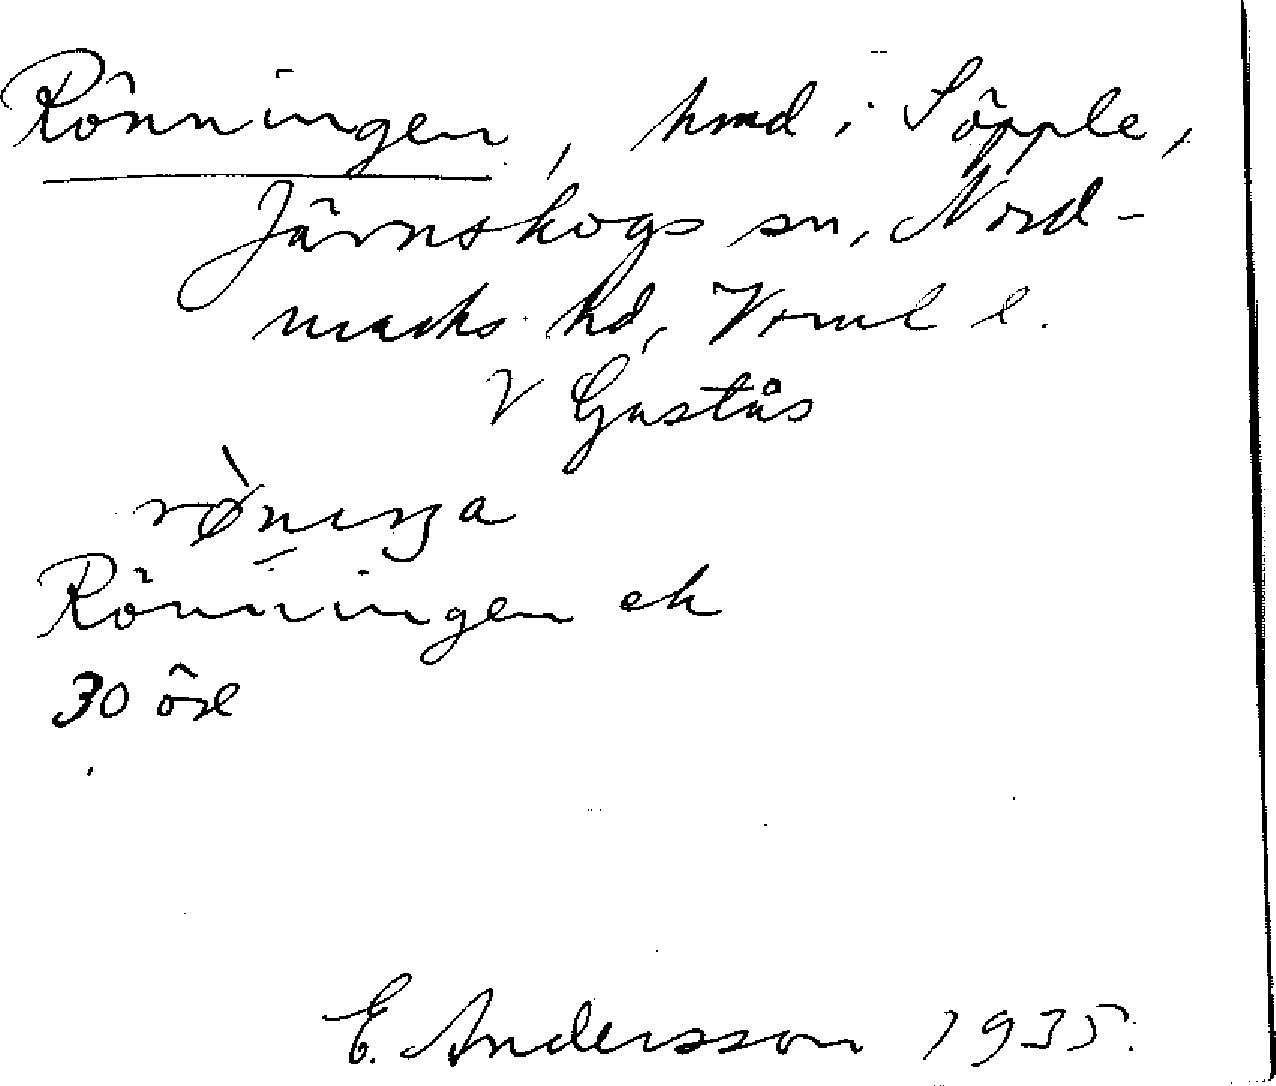 Rönningen, hmd i Söpple,
Järnskogs sn, Nord-
marks hd, Vrml l.
V Gustås
rø̀nıŋa
Rönningen ek
30 öre
E. Andersson 1935.